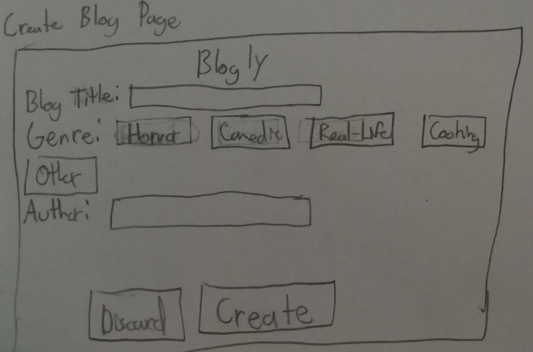 Create Blog Page
Blogly
Blog Title:
Genre: Horror Comedic Real-Life Cooking
Other
Author:
Discard Create